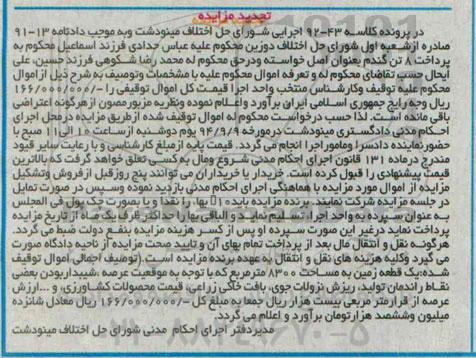 تجدید مزایده
در پرونده کلاسه ۴۳-۹۲ اجرایی شورای حل اختلاف مینودشت وبه موجب دادنامه ۱۳-۹۱
صادره ازشعبه اول شورای حل اختلاف دوزین محکوم علیه عباس حدادی فرزند اسماعیل محکوم به
پرداخت ۸ تن گندم بعنوان اصل خواسته ودرحق محکوم له محمد رضا شکوهی فرزند حسین، علی
ایحال حسب تقاضای محکوم له و تعرفه اموال محکوم علیه با مشخصات وتوصیف به شرح ذیل ازاموال
محکوم علیه توقیف وکارشناس منتخب واحد اجرا قیمت کل اموال توقیفی را -/۱۶۶/۰۰۰/۰۰۰
ریال وجه رایج جمهوری اسلامی ایران برآورد واعلام نموده ونظریه مزبورمصون ازهرگونه اعتراضی
باقی مانده است. لذا حسب درخواست محکوم له اموال توقیف شده ازطریق مزایده درمحل اجرای
احکام مدنی دادگستری مینودشت درمورخه ۹۴/۹/۹ روز دوشنبه ازساعت ۱۰ الی ۱۱ صبح با
حضورنماینده دادسرا ومامور اجرا انجام می گردد. قیمت پایه ازمبلغ کارشناسی و با رعایت سایر قیود
مندرج درماده ۱۳۱ قانون اجرای احکام مدنی شروع ومال به کسی تعلق خواهد گرفت که بالاترین
قیمت پیشنهادی را قبول کرده است. خریدار یا خریداران می توانند پنج روزقبل ازفروش وتشکیل
مزایده از اموال مورد مزایده با هماهنگی اجرای احکام مدنی بازدید نموده وسپس در صورت تمایل
در جلسه مزایده شرکت نمایند. برنده مزایده باید ۱۰٪ بها، را نقدا و یا بصورت چک پول فی المجلس
به عنوان سپرده به واحد اجرا، تسلیم نماید و الباقی بها را حداکثر ظرف یک ماه از تاریخ مزایده
پرداخت نماید درغیر این صورت سپرده او پس از کسر هزینه مزایده بنفع دولت ضبط می گردد.
هرگونه نقل و انتقال مال بعد از پرداخت تمام بهای آن و تایید صحت مزایده از ناحیه دادگاه صورت
می گیرد وکلیه هزینه های نقل و انتقال به عهده برنده مزایده است. (توصیف اجمالی اموال توقیف
شده:یک قطعه زمین به مساحت ۸۳۰۰ مترمربع که با توجه به موقعیت عرصه ،شیبداربودن بعضی
نقاط راندمان تولید، ریزش نزولات جوی، بافت خاکی زراعی، قیمت محصولات کشاورزی، و ... ارزش
عرصه از قرارمتر مربعی بیست هزار ریال جمعا به مبلغ کل -/۱۶۶/۰۰۰/۰۰۰ ریال معادل شانزده
میلیون وششصد هزارتومان برآورد و اعلام می گردد.
مدیردفتر اجرای احکام مدنی شورای حل اختلاف مینودشت